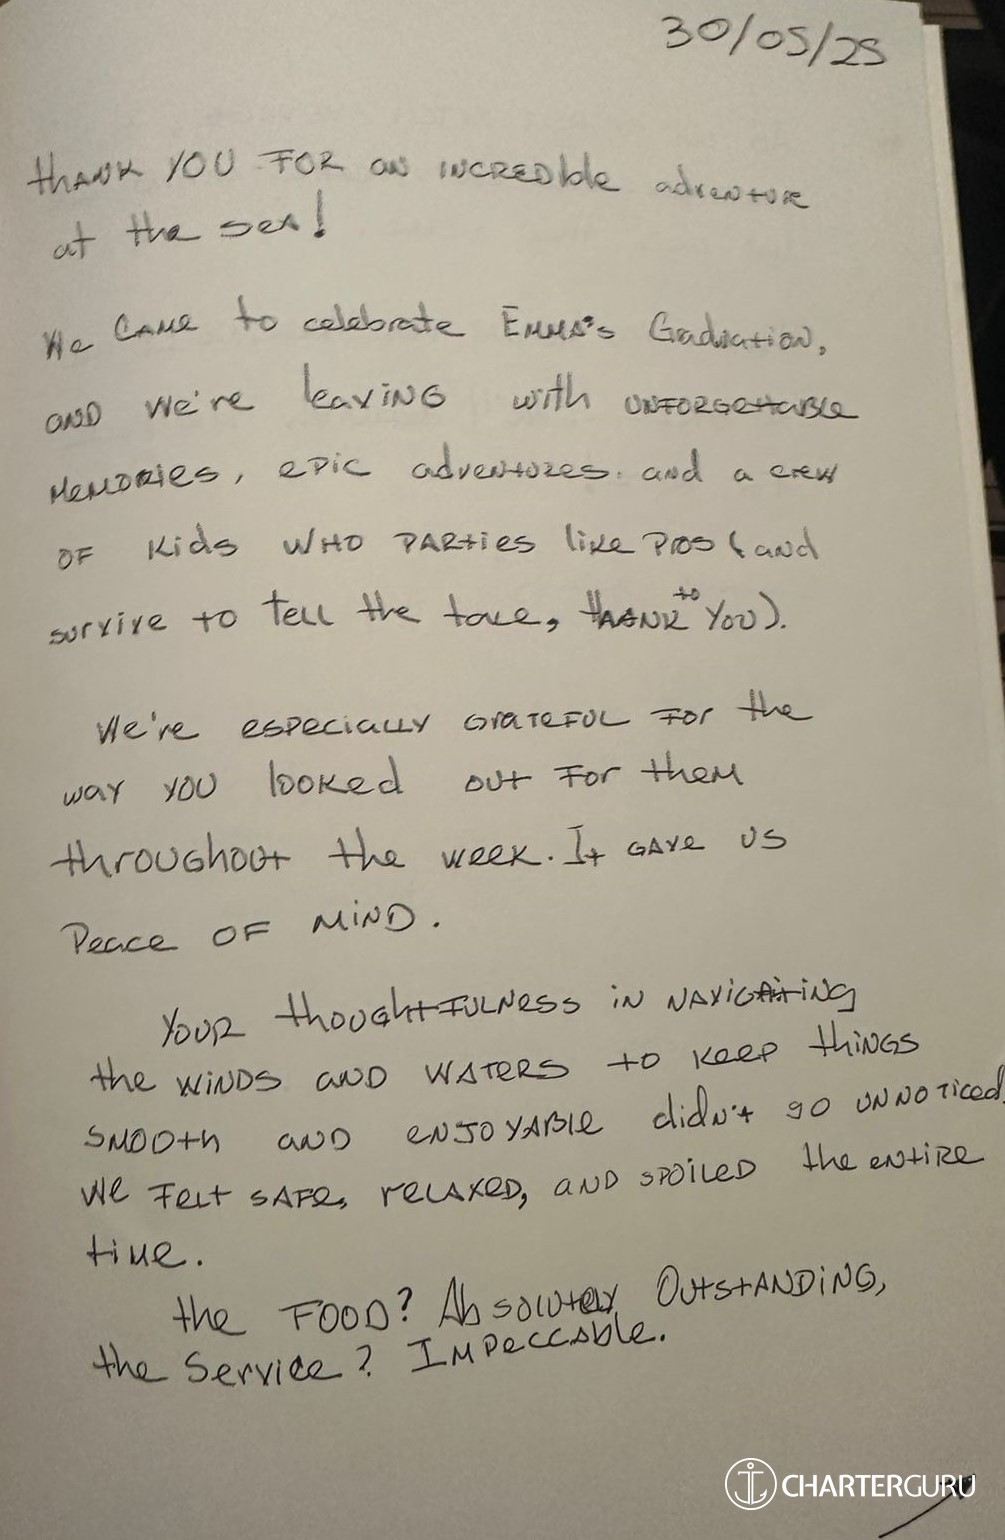 30/05/25
thANK YOU FOR an INCREDIble adventure
at the sea!
We CAME to celebrate EMMA's Graduation,
AND We're leaving with UNFORGettable
MeMORies, ePic adventures. and a crew
OF Kids WHO PARties like Pros (and
survive to tell the tale, thANK to YOU).
We're especially Grateful For the
way YOU looked out For them
throughout the week. It GAVE US
Peace OF MiND.
YOUR thoughtFULNess in NAVIGAtiNg
the WiNDS AND WATERS to keep thiNGS
SMOOth AND ENJOYABle didn't go UNNOTiced.
We Felt SAFe, relaxed, AND SPOiled the entiRE
time.
the FOOD? Absolutely OutstANDiNG,
the Service? IMPeccAble.
CHARTERGURU